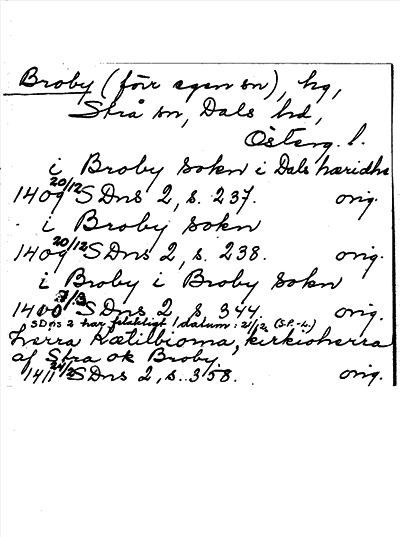 Broby (förr egen sn), hg,
Strå sn, Dals hd,
Österg. l.
i Broby sokn i Dals hæridhe
1409 20/12 SDns 2, s. 237. orig.
i Broby sokn
1409 20/12 SDns 2, s. 238. orig.
i Broby i Broby sokn
1400 7/3 SDns 2, s. 344. orig.
SDns 2 har felaktigt datum: 2/12 (S.P.-L.)
herra Kætilbiorna, kirkioherra
af Stra ok Broby.
1411 24/2 SDns 2, s. 358. orig.